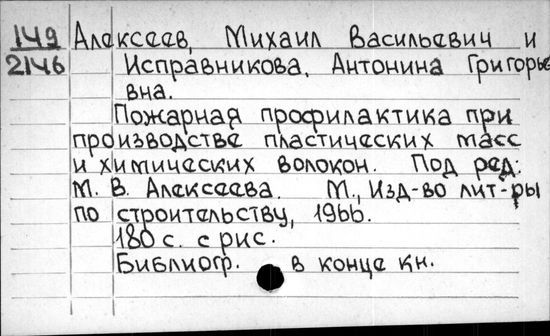 149 Алексеев, Михаил Васильевич и
2146 Исправникова, Антонина Григорье
вна.
Пожарная профилактика при
производстве пластических масс
и химических волокон. Под ред.
М. В. Алексеева. М., Изд-во лит-ры
по строительству, 1966.
180 с. с рис.
Библиогр. в конце кн.